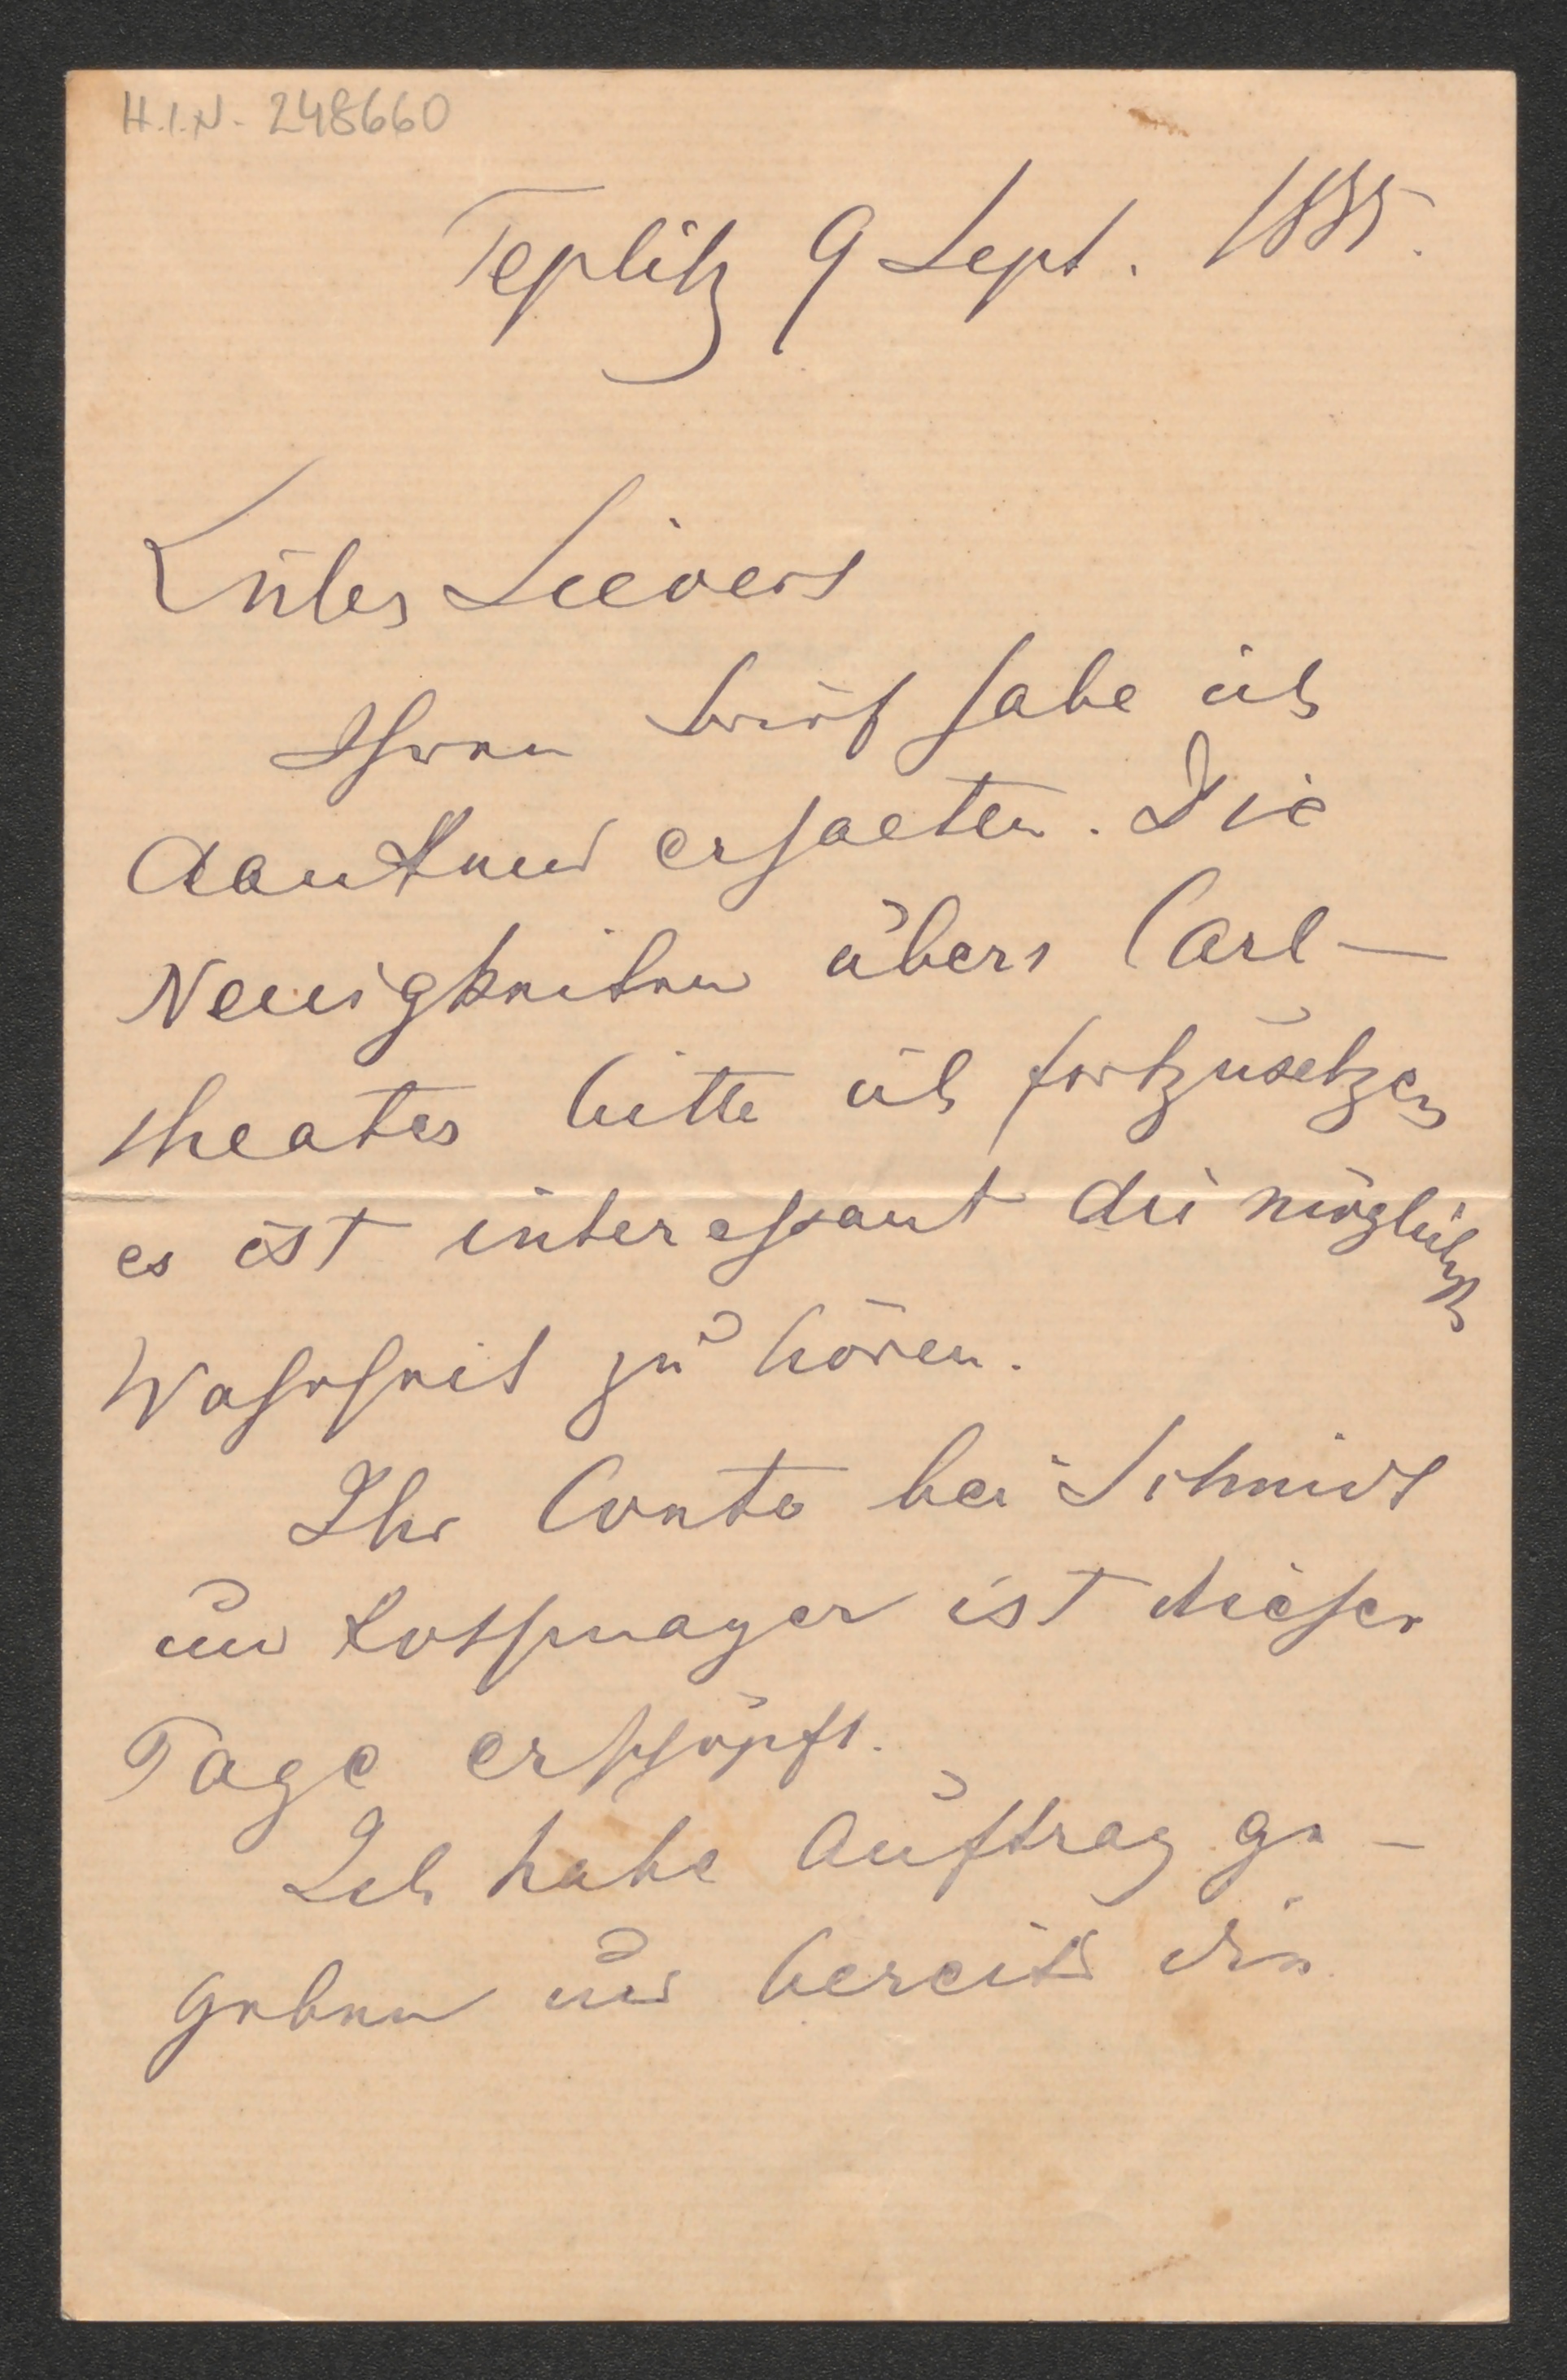 H.I.N. 248660
Teplitz 9 Sept. 1885.
Lieber Sievers
Ihren Brief habe ich
dankend erhalten. Die
Neuigkeiten übers Carl-
theater bitte ich fortzusetzen
es ist interessant die möglichste
Wahrheit zu hören.
Ihr Conto bei Schmidt
und Kossmayer ist dieser
Tage erschöpft.
Ich habe Auftrag ge-
geben und bereits die